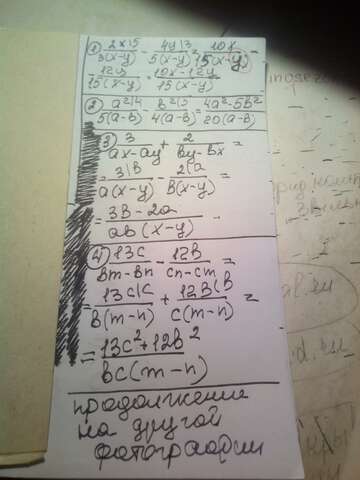 1) 2x|5 / 3(x-y) - 4y|3 / 5(x-y) = 10x / 15(x-y) -
- 12y / 15(x-y) = 10x-12y / 15(x-y)
2) a²|4 / 5(a-b) - b²|5 / 4(a-b) = 4a²-5b² / 20(a-b)
3) 3 / ax-ay + 2 / by-bx =
= 3|b / a(x-y) - 2|a / b(x-y) =
= 3b-2a / ab(x-y)
4) 13c / bm-bn - 12b / cn-cm =
= 13c|c / b(m-n) + 12b|b / c(m-n) =
= 13c²+12b² / bc(m-n)
продолжение
на другой
фотографии